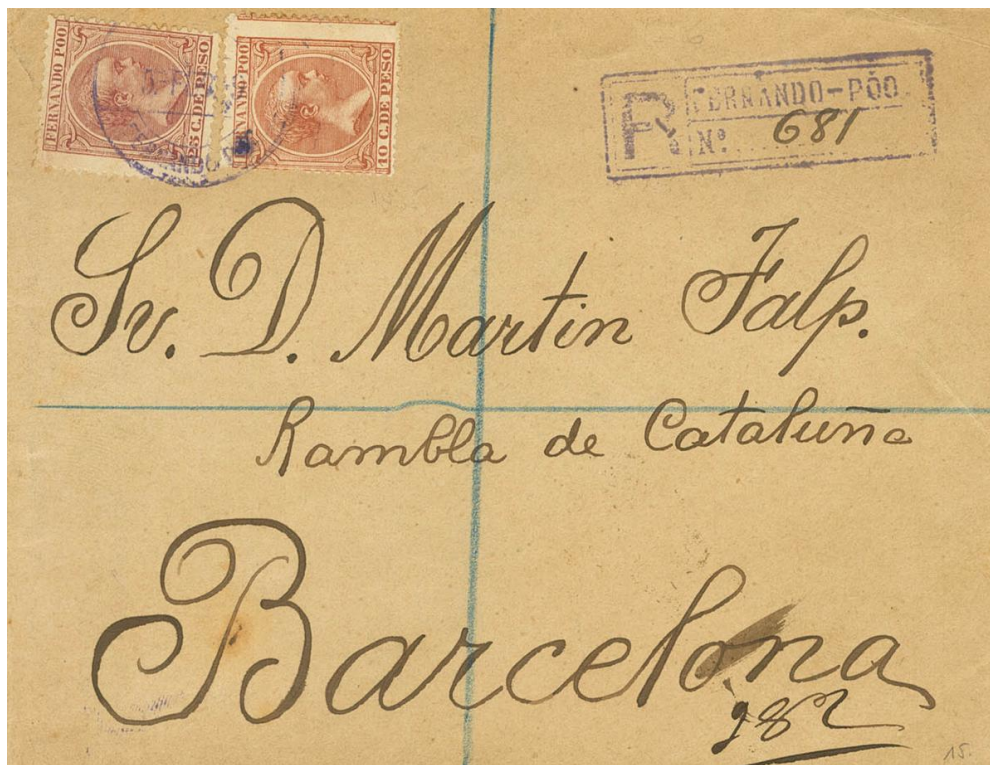 FERNANDO POO
25 C. DE PESO
FERNANDO POO
10 C. DE PESO
R
FERNANDO-PÓO
Nº 681
Sr. D. Martin Falp.
Rambla de Cataluña
Barcelona
982
15.